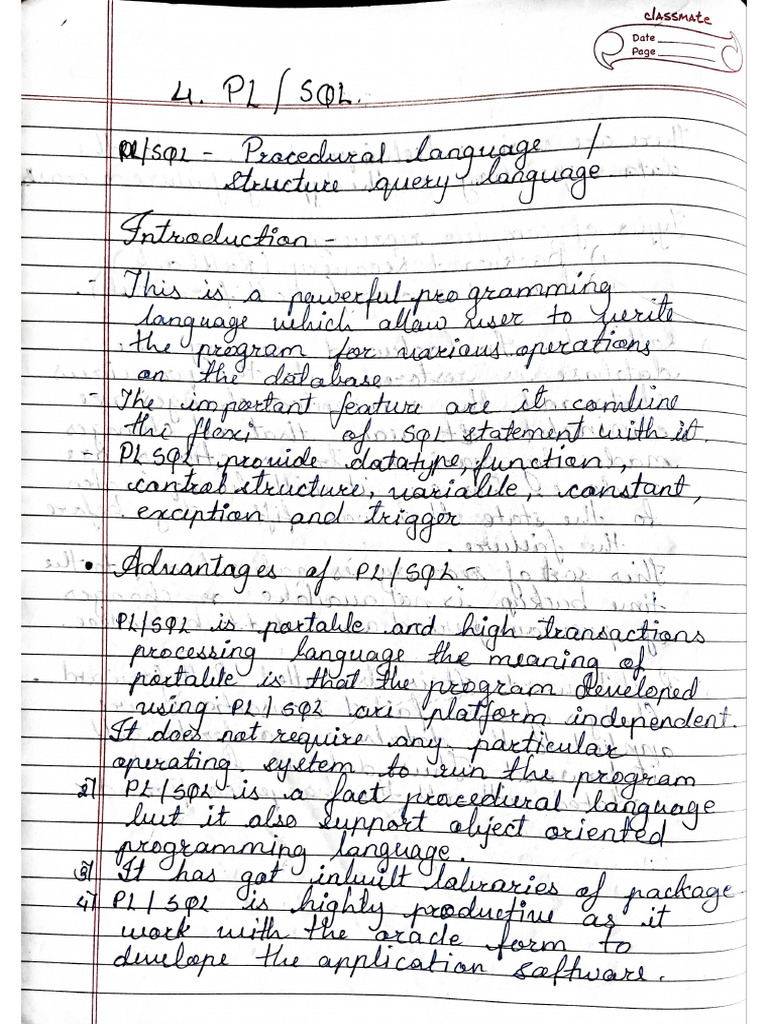 classmate
Date
Page
4. PL / SQL.
PL/SQL - Procedural language /
structure query language
Introduction -
- This is a powerful programming
language which allow user to write
the program for various operations
on the database
- The important feature are it combine
the flexi of SQL statement with it.
- PL SQL provide datatype, function,
control structure, variable, constant,
exception and trigger
• Advantages of PL/SQL -
PL/SQL is portable and high transactions
processing language the meaning of
portable is that the program developed
using PL/SQL are platform independent.
It does not require any particular
operating system to run the program
2) PL/SQL is a fact procedural language
but it also support object oriented
programming language.
3) It has got inbuilt labraries of package
4) PL/SQL is highly productive as it
work with the oracle form to
develope the application software.